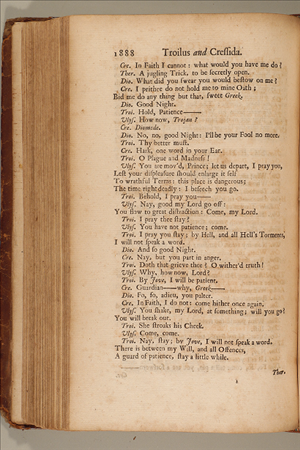 1888 Troilus and Cressida.
Cre. In Faith I cannot: what would you have me do?
Ther. A jugling Trick, to be secretly open.
Dio. What did you swear you would bestow on me?
Cre. I prithee do not hold me to mine Oath;
Bid me do any thing but that, sweet Greek.
Dio. Good Night.
Troi. Hold, Patience——
Ulys. How now, Trojan?
Cre. Diomede.
Dio. No, no, good Night: I'll be your Fool no more.
Troi. Thy better must.
Cre. Hark, one word in your Ear.
Troi. O Plague and Madness!
Ulys. You are mov'd, Prince; let us depart, I pray you,
Lest your displeasure should enlarge it self
To wrathful Terms: this place is dangerous;
The time right deadly: I beseech you go.
Troi. Behold, I pray you——
Ulys. Nay, good my Lord go off:
You flow to great distraction: Come, my Lord.
Troi. I pray thee stay?
Ulys. You have not patience; come.
Troi. I pray you stay; by Hell, and all Hell's Torments,
I will not speak a word.
Dio. And so good Night.
Cre. Nay, but you part in anger.
Troi. Doth that grieve thee? O wither'd truth!
Ulys. Why, how now, Lord?
Troi. By Jove, I will be patient.
Cre. Guardian——why, Greek——
Dio. Fo, fo, adieu, you palter.
Cre. In Faith, I do not: come hither once again.
Ulys. You shake, my Lord, at something; will you go?
You will break out.
Troi. She stroaks his Cheek.
Ulys. Come, come.
Troi. Nay, stay; by Jove, I will not speak a word.
There is between my Will, and all Offences,
A guard of patience, stay a little while.
Ther.